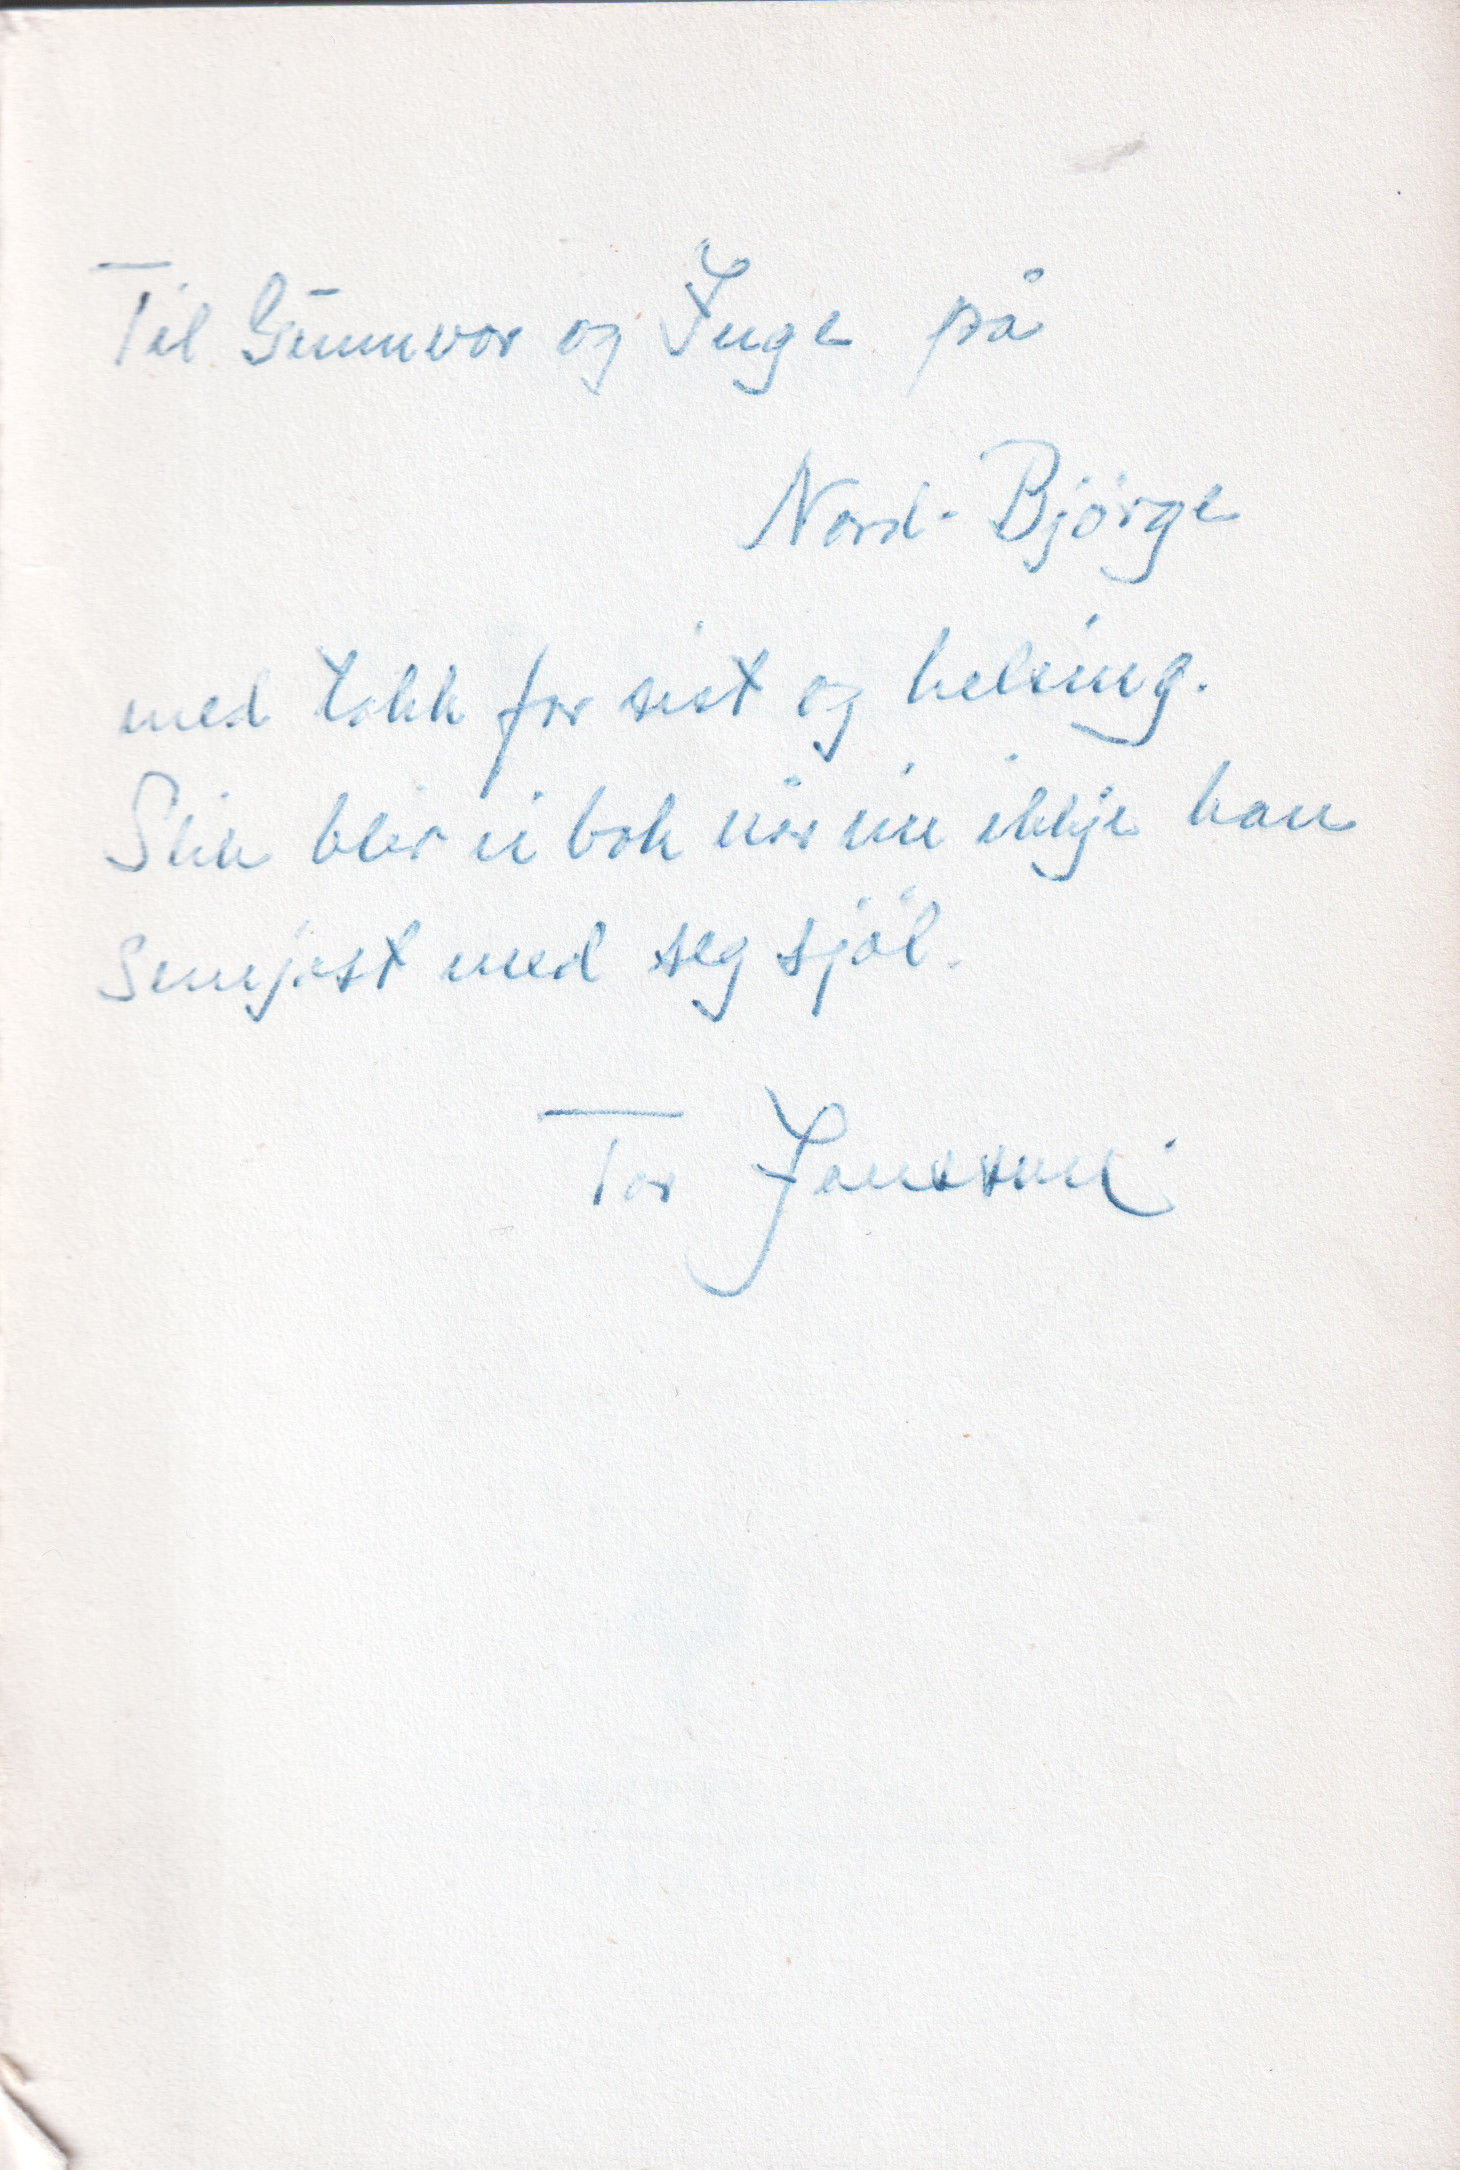 Til Gunnvor og Inge på
Nord-Björge
med takk for sist og helsing.
Slik blir ei bok når ein ikkje kan
semjast med seg sjöl.
Tor Jonsson